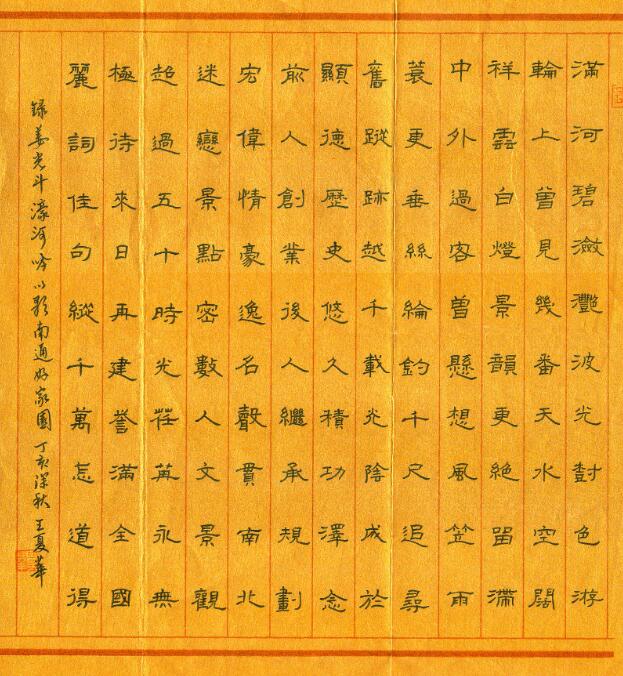 滿河碧瀲灩波光尌色游
輪上曾見幾番天水空闊
祥雲白燈景韻更絕留滯
中外過客曾懸想風笠雨
蓑更垂絲綸釣千尺追尋
舊蹤跡越千載光陰成於
顯德歷史悠久積功澤念
前人創業後人繼承規劃
宏偉情豪逸名聲貫南北
迷戀景點密數人文景觀
超過五十時光荏苒永無
極待來日再建譽滿全國
麗詞佳句縱千萬怎道得
錄姜光斗濠河吟以南通好家園 丁亥深秋 王夏華